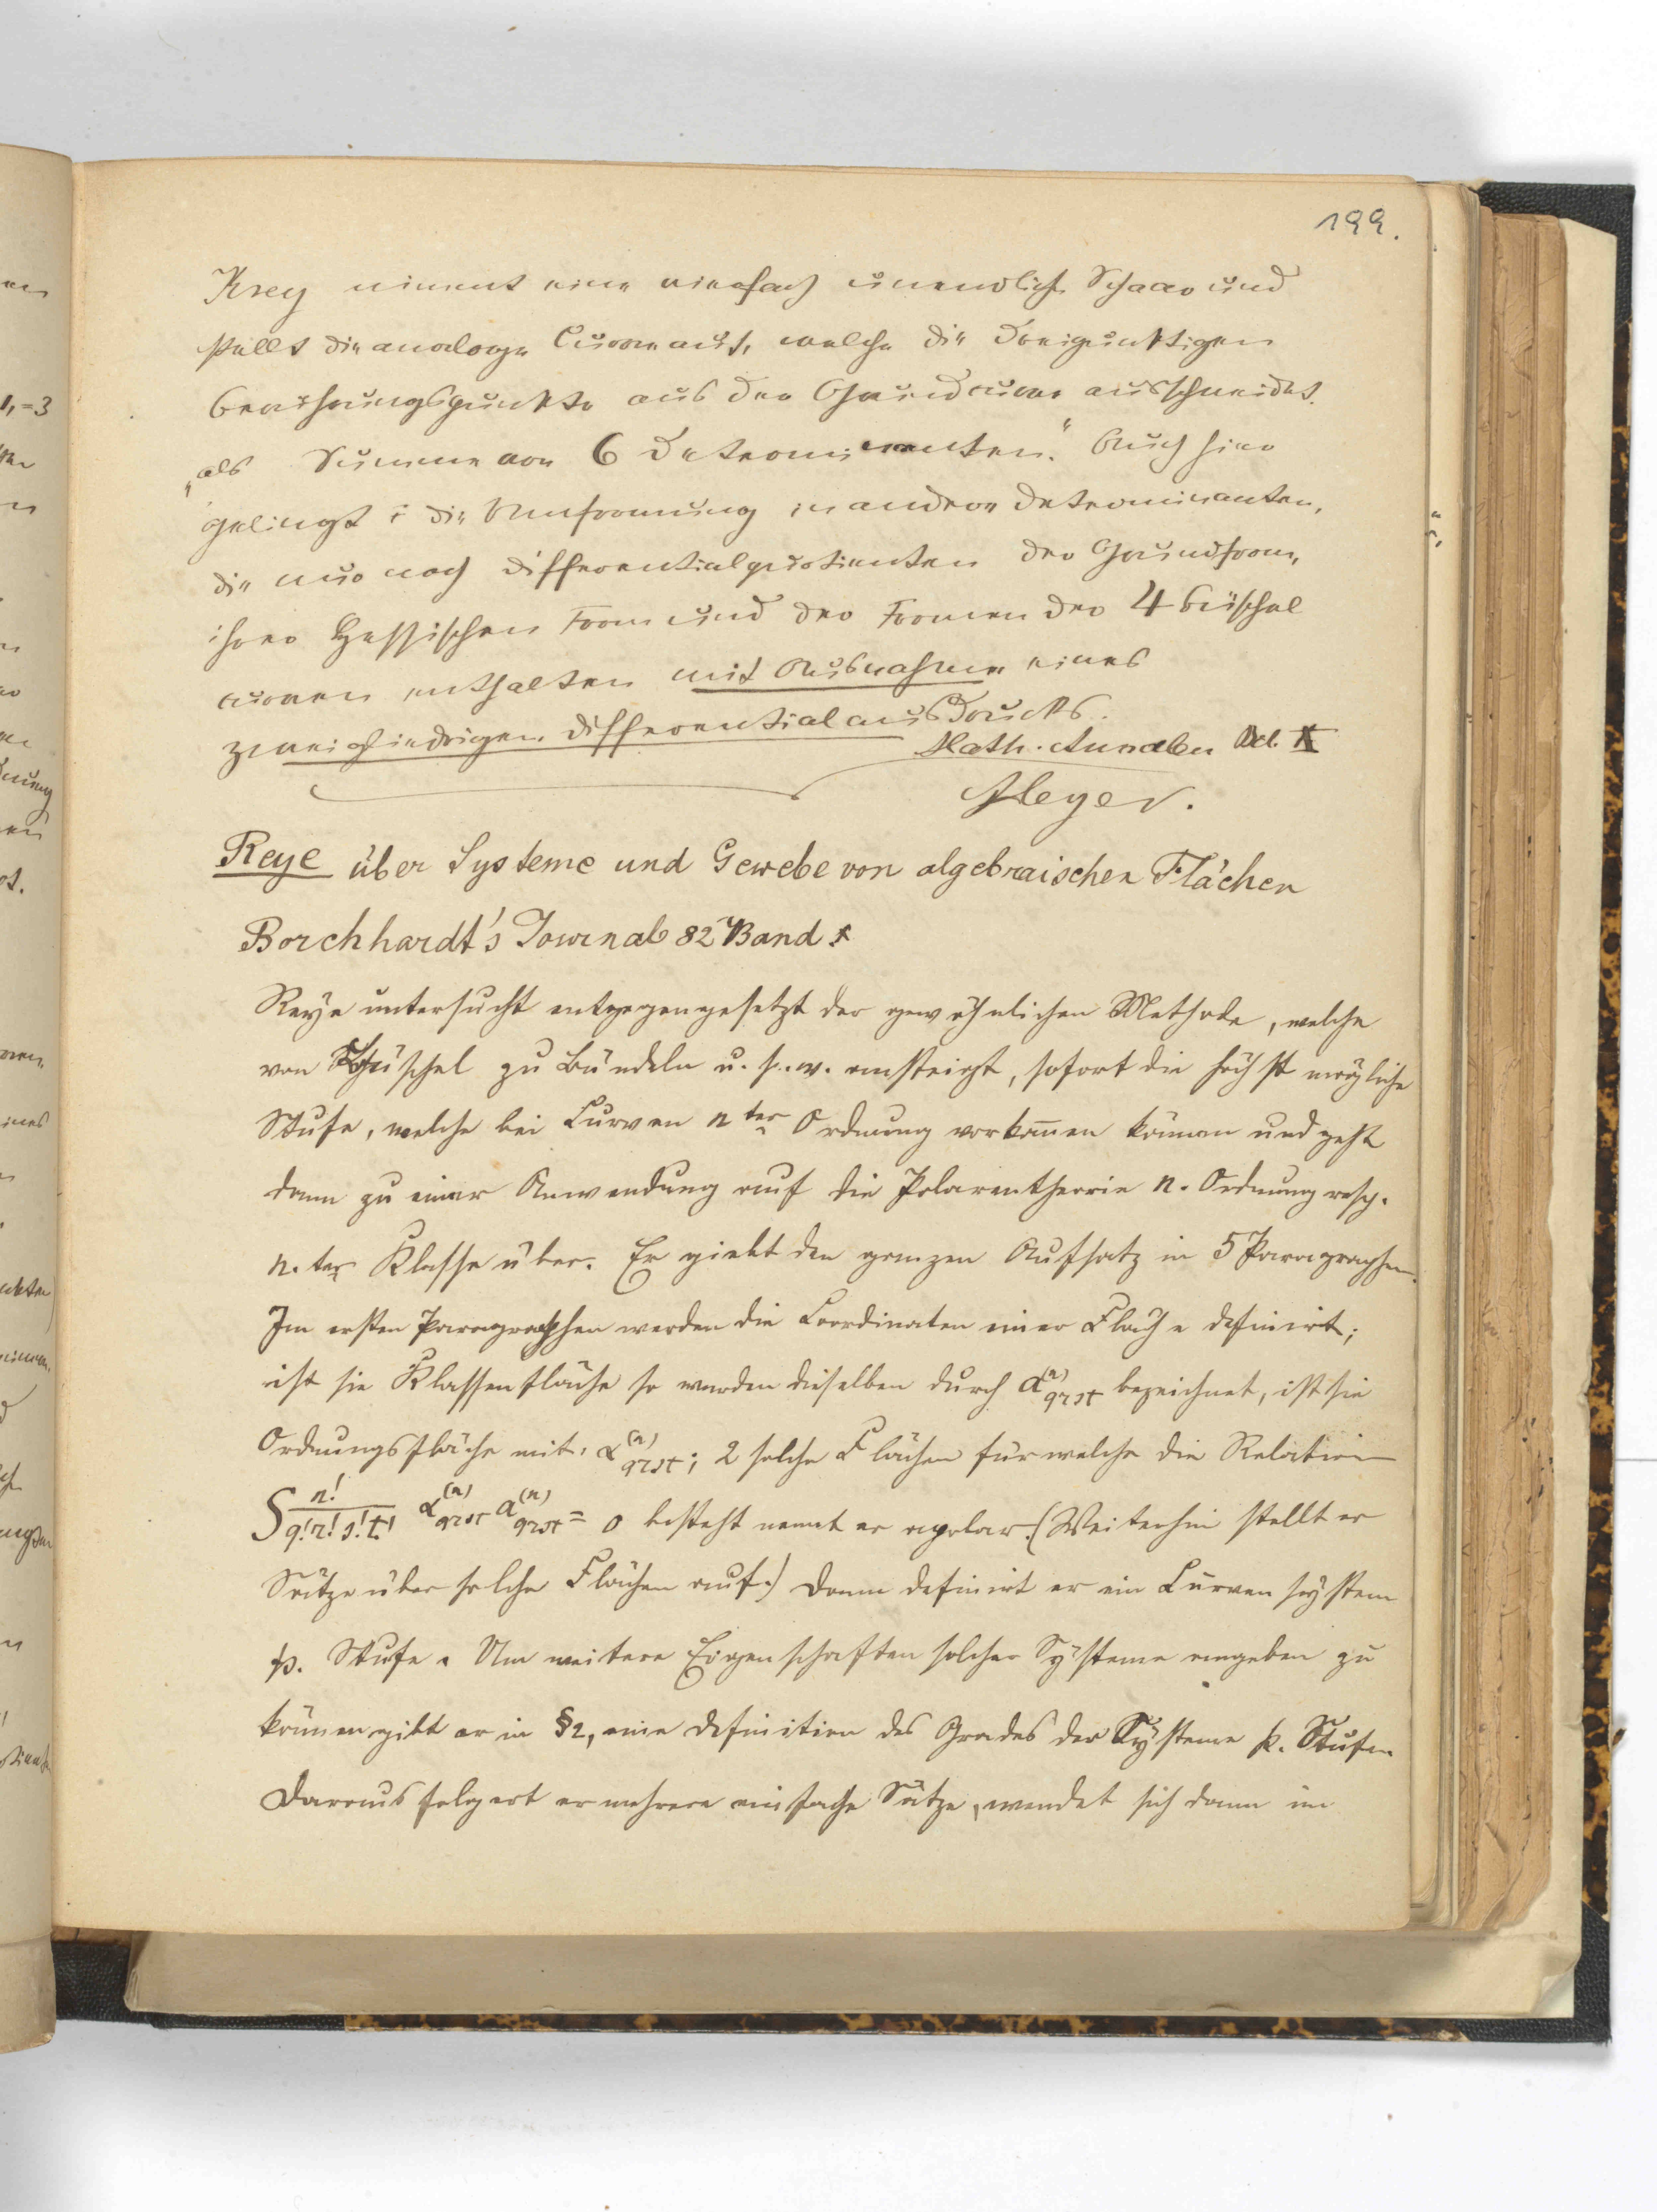 199.
Krey nimmt eine vierfach unendliche Schaar und
stellt die analoge Curve auf, welche die dreipunktigen
Berührungspunkte aus der Grundcurve ausschneidet.
„als Summe von 6 Determinanten." Auch hier
gelingt die Umformung in andere Determinanten,
die nur noch Differentialquotienten der Grundform,
ihrer Hessischen Form und der Formen der 4 Büschel
curven enthalten mit Ausnahme eines
zweigliedrigen Differentialausdrucks.
Math. Annalen Bd. X
Meyer.
Reye über Systeme und Gewebe von algebraischen Flächen
Borchhardt's Journal 82 Band.
Reye untersucht entgegengesetzt der gewöhnlichen Methode, welche
von Büschel zu Bündeln u. s. w. ansteigt, sofort die höchst mögliche
Stufe, welche bei Curven n ter Ordnung vorkom̄en können und geht
dann zu einer Anwendung auf die Polarentheorie n. Ordnung resp.
n. ter Klasse über. Er giebt den ganzen Aufsatz in 5 Paragraphen.
Im ersten Paragraphen werden die Coordinaten einer Fläche definirt;
ist sie Klassenfläche so werden dieselben durch a^(n)_qrst bezeichnet, ist sie
Ordnungsfläche mit: α^(n)_qrst; 2 solche Flächen für welche die Relation
S n!/(q! r! s! t!) α^(n)_qrst a^(n)_qrst = 0 besteht nennt er apolar. (Weiterhin stellt er
Sätze über solche Flächen auf.) Dann definirt er ein Curvensystem
p. Stufe. Um weitere Eigenschaften solcher Systeme angeben zu
können gibt er in §2, eine Definition des Grades der Systeme p. Stufe.
Daraus folgert er mehrere einfache Sätze, wendet sich dann im